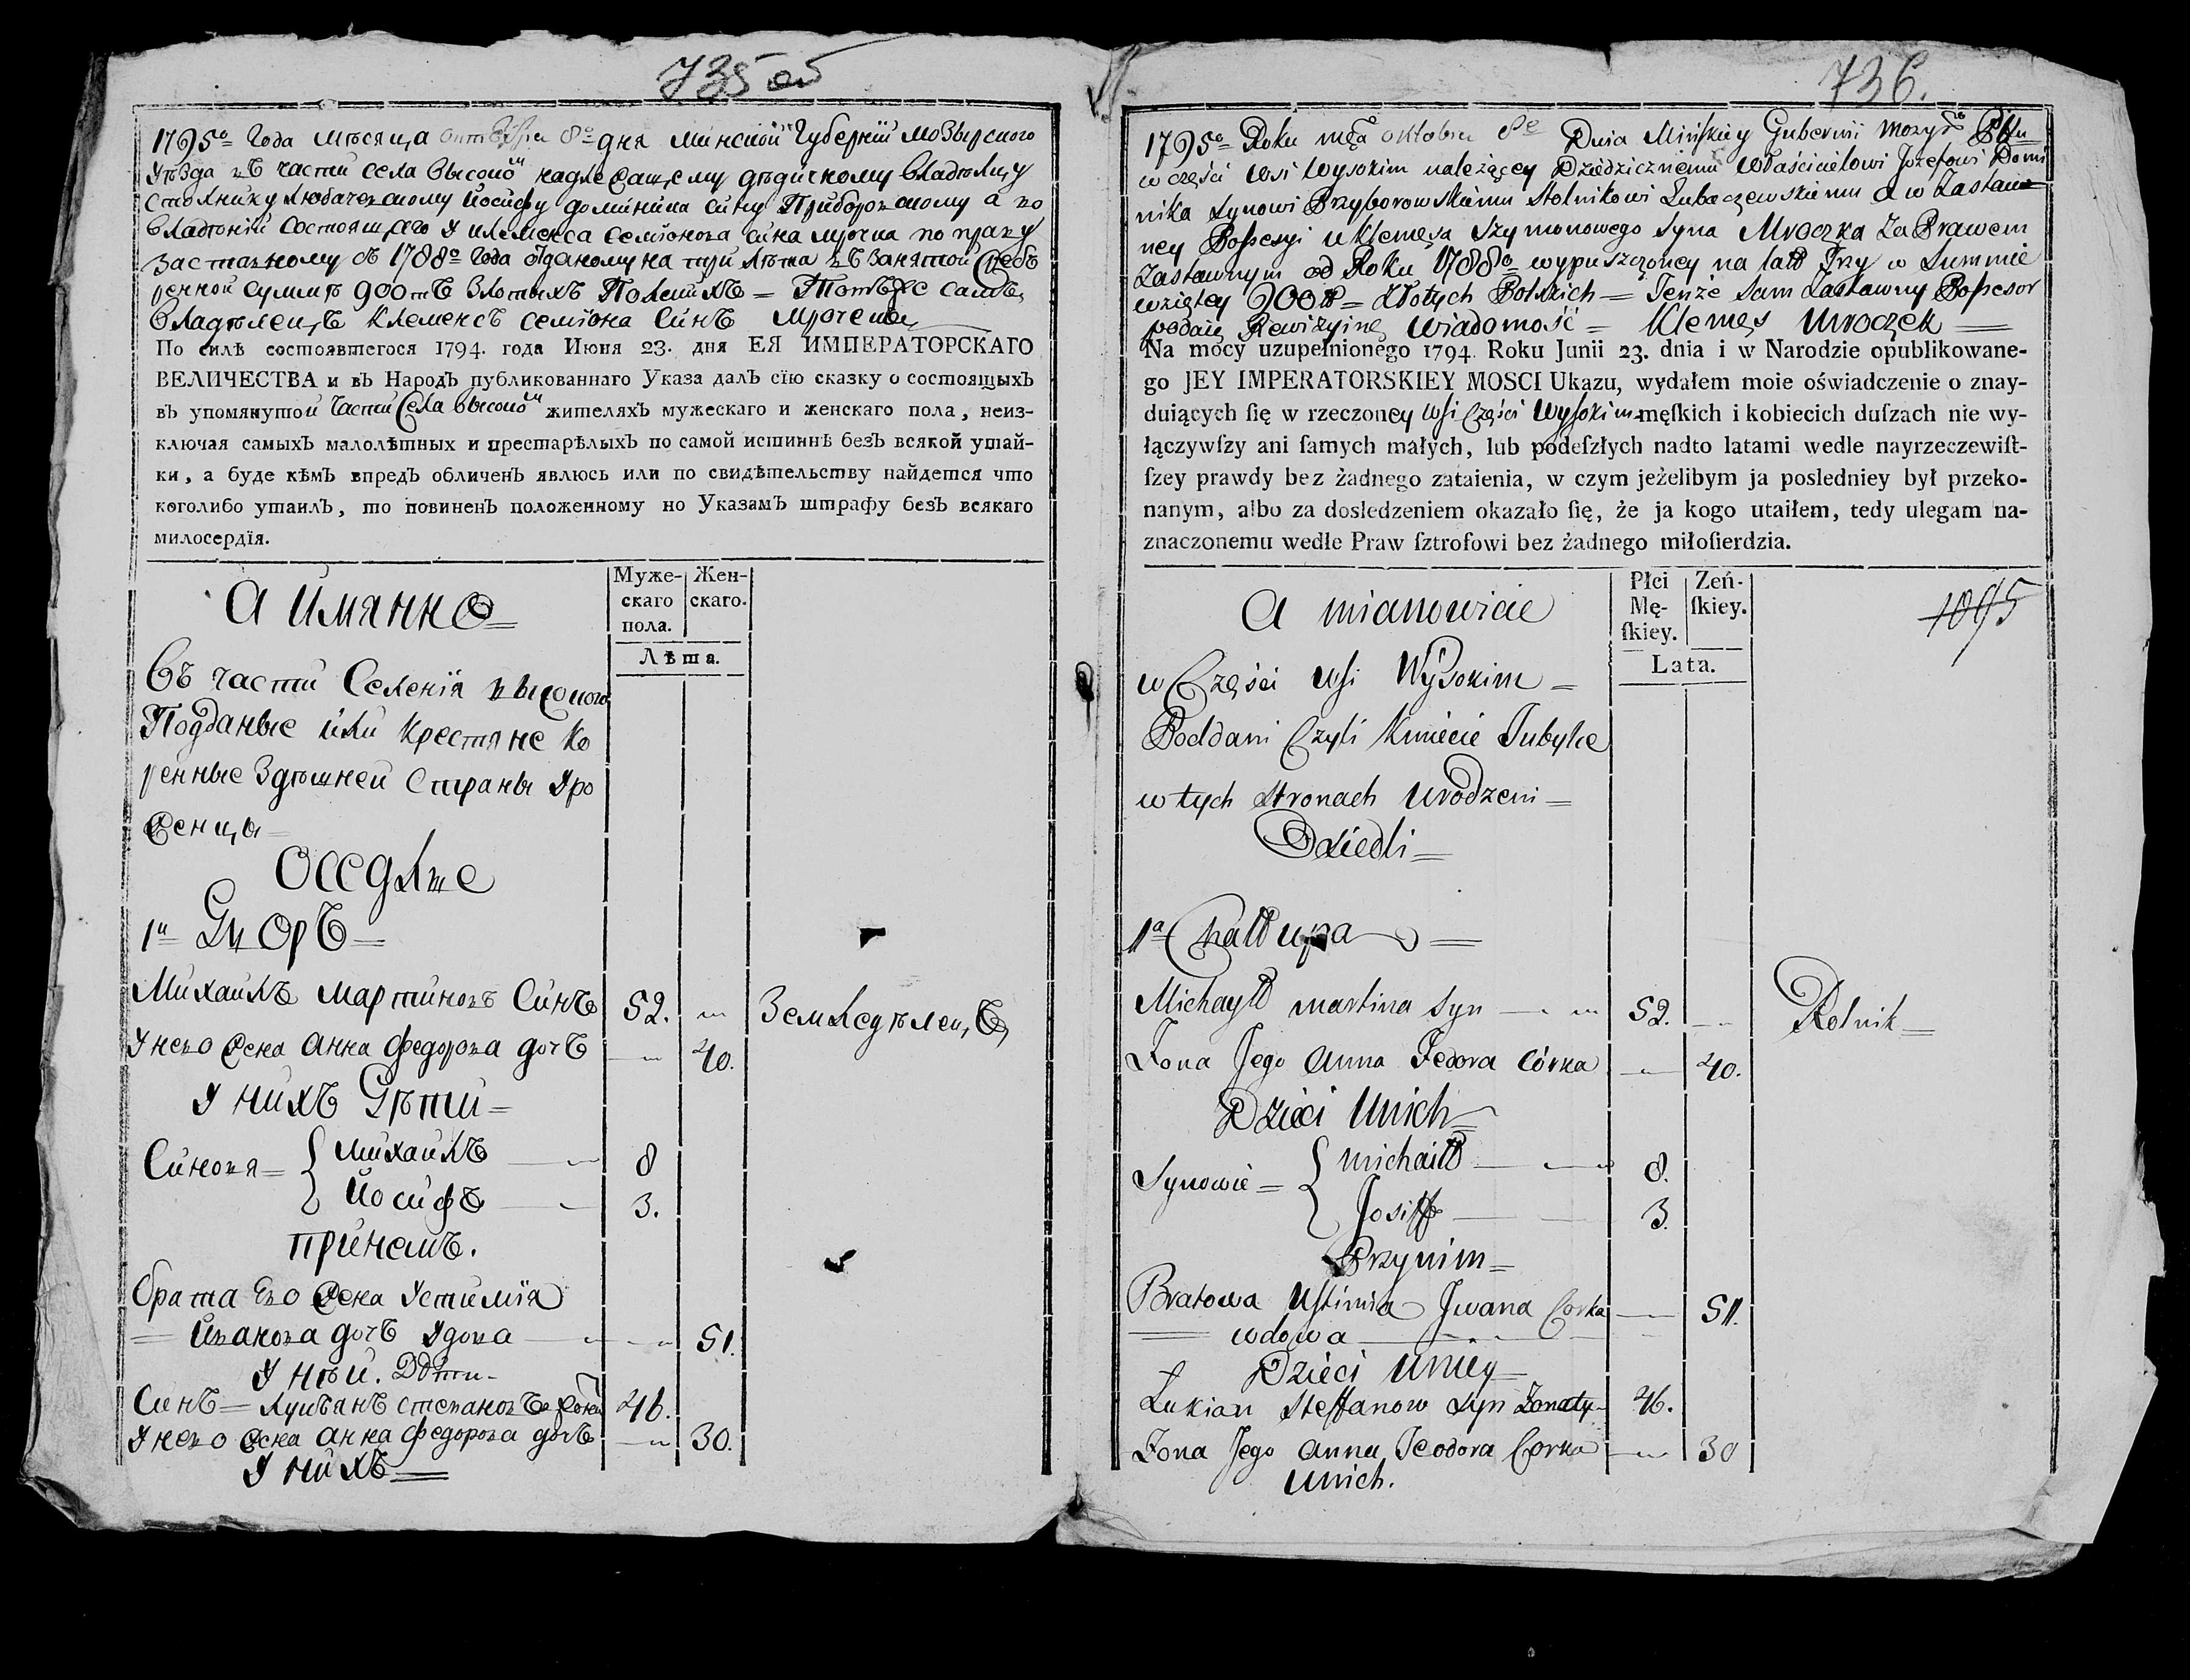 735 об
1795го Года мѣсяца октября 8го дня Минской Губернїи мозырскаго
уѣзда въ части села высокомъ надлежащему дѣдичному владѣлцу
столнику любачевскому йосифу доминика сину Приборовскому а во
владѣнїи состоящаго у клеменса семïонова сина мрочка по праву
заставному съ 1788го Года отданому на три лѣта въ занятой сребр
ренной суммѣ 900тъ Злотыхъ Полскихъ = Тотъже самъ
владѣлецъ клеменсъ семïона Синъ мрочекъ
По силѣ состоявшегося 1794. года Июня 23. дня ЕЯ ИМПЕРАТОРСКАГО
ВЕЛИЧЕСТВА и въ Народъ публикованнаго Указа далъ сїю сказку о состоящыхъ
въ упомянутой части Села высокомъ жителяхъ мужескаго и женскаго пола, неиз-
ключая самыхъ малолѣтныхъ и престарѣлыхъ по самой истиннѣ безъ всякой утай-
ки, а буде кѣмъ впредъ обличенъ явлюсь или по свидѣтельству найдется что
коголибо утаилъ, то повиненъ положенному по Указамъ штрафу безъ всякаго
милосердїя.
А имянно =
Муже-
скаго
пола.
Жен-
скаго.
Лѣта.
Въ части Селенїя высокого
Подданые или Крестяне ко
ренные здѣшней Страны уро
женцы =
Оседлые
1й Дворъ =
Михаилъ мартиновъ Синъ 52. Земледѣлецъ
У него жена анна федорова дочъ 40.
у нихъ Дѣти =
Синовя = { михаилъ 8
Йосифъ 3.
принемъ.
брата Его жена устимïя
= Иванова дочъ вдова 51.
У ней. Дѣти =
Синъ = лукъянъ степановъ женат 46.
у него жена анна федорова дочъ 30.
У нихъ =
736.
1795o Roku mca oktobra 8o Dnia Mińskiey Gubernii mozyrs Pttu
w części wsi wysokim należącey Dziedzicznemu właścicielowi Jozefowi Domi
nika synowi Przyborowskiemu stolnikowi Lubaczewskiemu a w Zastaw
ney Possesyi u Klemęsa szymonowego syna Mroczka Za Prawem
Zastawnym od Roku 1788o wypuszczoney na latt Trzy w summie
wziętey 900tt = Złotych Polskich = Tenże Sam Zastawny Possesor
podaię Rewizyiną wiadomość = Klemęs Mroczek
Na mocy uzupełnionego 1794. Roku Junii 23. dnia i w Narodzie opublikowane-
go JEY IMPERATORSKIEY MOSCI Ukazu, wydałem moie oświadczenie o znay-
duiących ſię w rzeczoney wsi Części wysokim męſkich i kobiecich duſzach nie wy-
łączywſzy ani ſamych małych, lub podeſzłych nadto latami wedle nayrzeczewiſt-
ſzey prawdy bez żadnego zataienia, w czym jeżelibym ja posledniey był przeko-
nanym, albo za dosledzeniem okazało ſię, że ja kogo utaiłem, tedy ulegam na-
znaczonemu wedle Praw ſztrofowi bez żadnego miłoſierdzia.
A mianowicie
Płci
Mę-
ſkiey.
Zeń-
ſkiey.
Lata.
1095
w Części wsi Wysokim =
Poddani Czyli Kmiecie Tubylce
w tych stronach urodzeni =
Osiedli =
1a Chattupa =
Michaytt martina syn 52. Rolnik =
Zona Jego Anna Fedora Córka 40.
Dzieci Unich =
Synowie = { michaitt 8.
Josiff 3.
Przynim =
Bratowa Ustimia Jwana Corka 51.
wdowa
Dzieci Uniey
Lukian Steffanow syn Zonaty 46.
Zona Jego anna Teodora Corka 30
Unich.